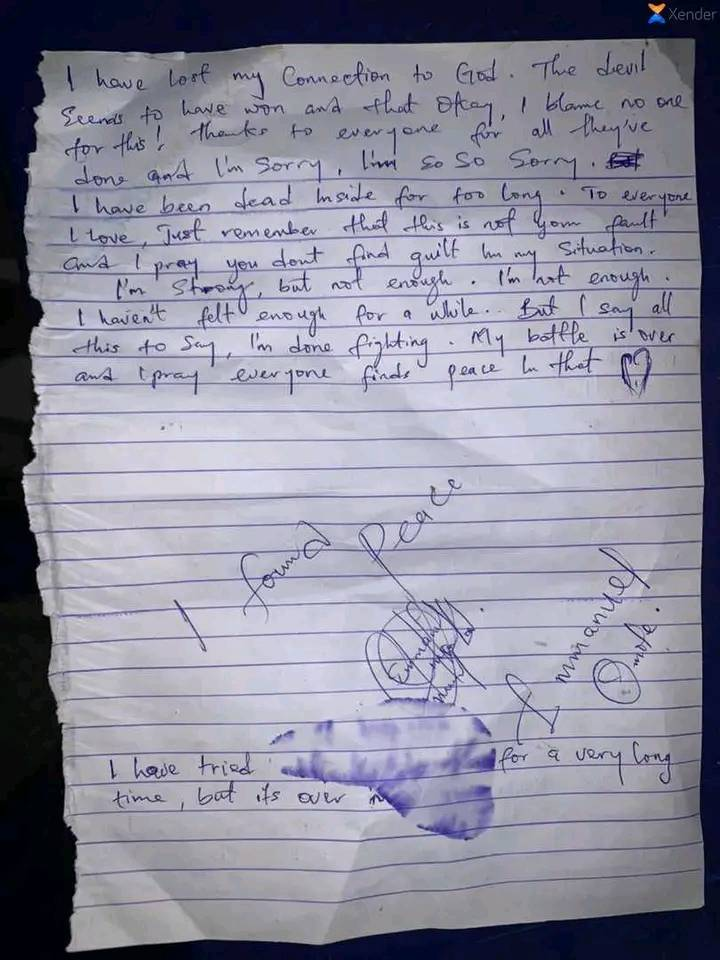 Xender
I have lost my Connection to God. The devil
Seems to have won and that Okay, I blame no one
for this! thanks to everyone for all they've
done and I'm Sorry, I'm so so Sorry.
I have been dead Inside for too long. To everyone
I love, Just remember that this is not your fault
and I pray you dont find guilt In my Situation.
I'm Strong, but not enough. I'm not enough.
I haven't felt enough for a while.. But I say all
this to Say, I'm done fighting. My battle is over
and I pray everyone finds peace In that
I found Peace
Emmanuel
I have tried for a very long
time, but its over